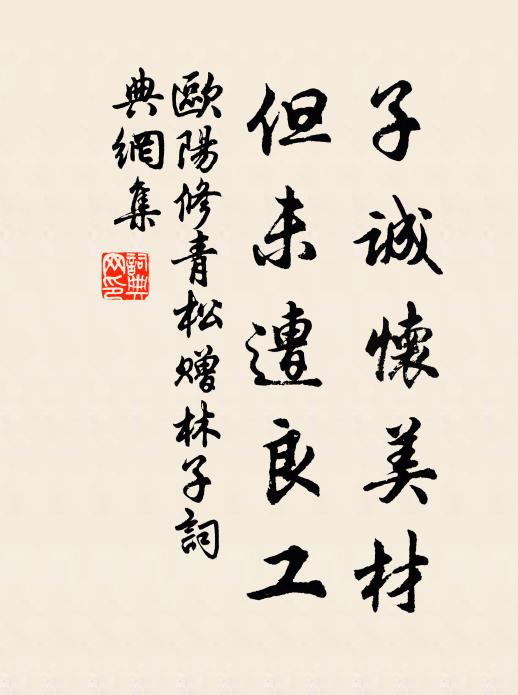 子誠懷美材
但未遭良工
歐陽修青松贈林子詞
典網集
詞典
网印